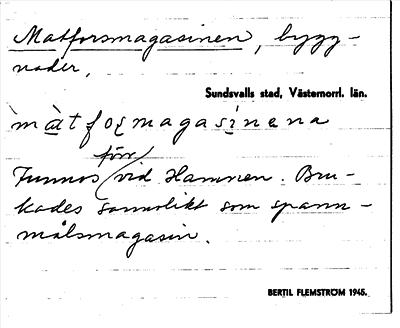 Matforsmagasinen, bygg-
nader,
Sundsvalls stad, Västernorrl. län.
màtformagasinena
förr
Funnos / vid Hamnen. Bru-
kades sannolikt som spann-
målsmagasin.
BERTIL FLEMSTRÖM 1945.